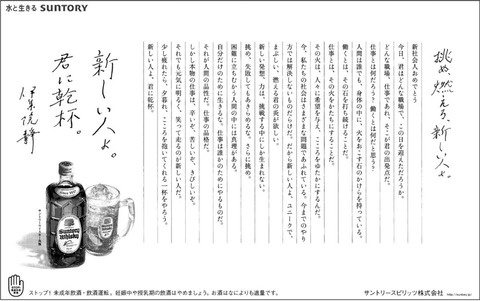 水と生きる SUNTORY
挑め、燃えろ、新しい人よ。
新社会人おめでとう
今日、君はどんな職場で、この日を迎えただろうか。
どんな職場、仕事であれ、そこが君の出発点だ。
仕事とは何だろう？ 働くとは何だと思う？
人間は誰でも、身体の中に、火をおこす石のかけらを持っている。
働くとは、その石を打ち続けることだ。
仕事とは、その火をかたちにすることだ。
その火は、人々に希望を与え、こころをゆたかにするんだ。
今、私たちの社会はさまざまな問題であふれている。今までのやり
方では解決しないものだらけだ。だから新しい人よ、ユニークで、
まぶしい、燃える君の炎が欲しい。
新しい発想、力は、挑戦する中にしか生まれない。
挑め。失敗してもあきらめるな。さらに挑め。
困難に立ちむかう人間の中には真理がある。
自分だけのために生きるな。仕事は誰かのためにやるものだ。
それが人間の品性だ。仕事の品格だ。
しかし本物の仕事は、辛いぞ、苦しいぞ、きびしいぞ。
それでも元気に明るく、笑って走るのが新しい人だ。
少し疲れたら、夕暮れ、こころを抱いてくれる一杯をやろう。
新しい人よ、君に乾杯。
新しい人よ。
君に乾杯。
伊集院静
SUNTORY
Whisky
ストップ！未成年飲酒・飲酒運転。妊娠中や授乳期の飲酒はやめましょう。お酒はなによりも適量です。
サントリースピリッツ株式会社